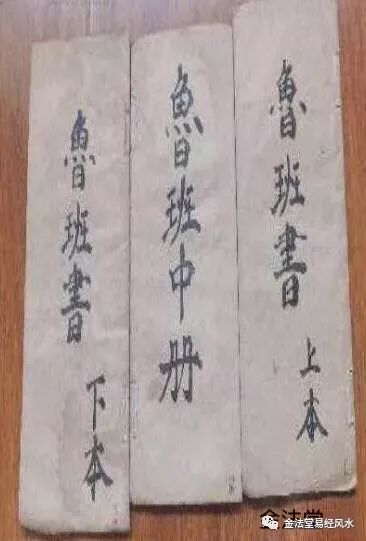 魯班書
上本
魯班中册
魯班書
下本
金法堂
金法堂易经风水